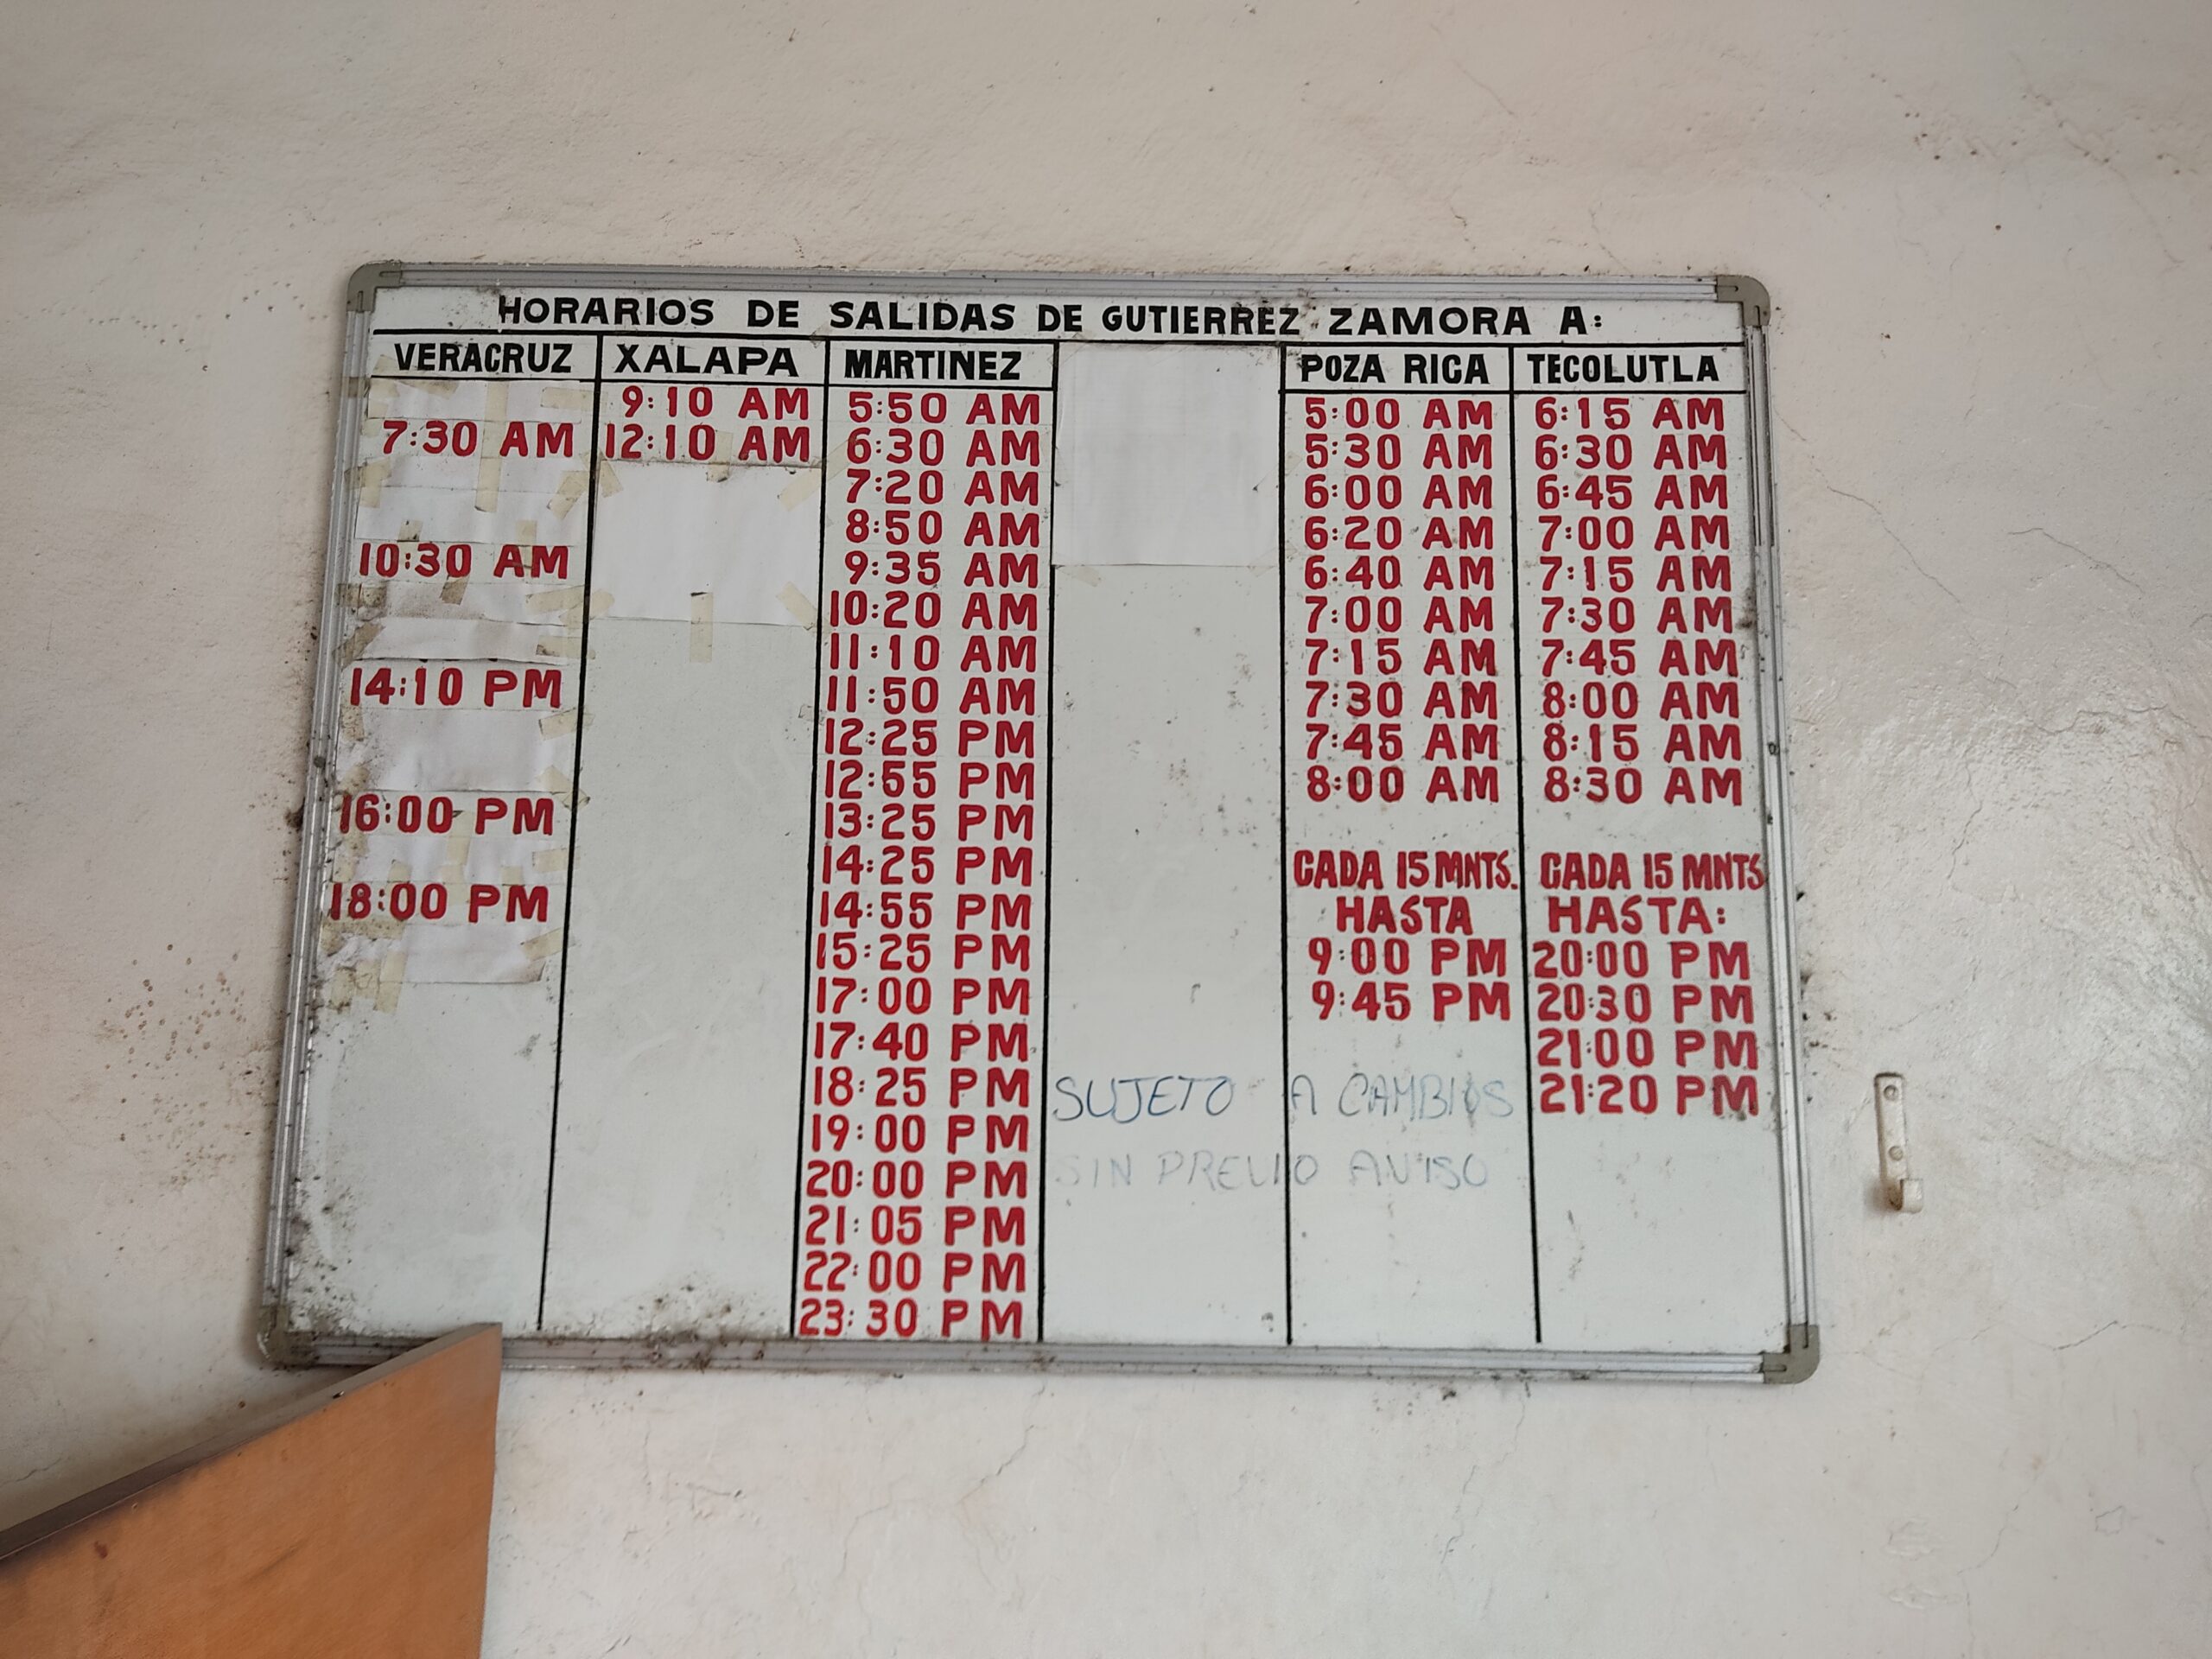 HORARIOS DE SALIDAS DE GUTIERREZ ZAMORA A:
VERACRUZ
7:30 AM
10:30 AM
14:10 PM
16:00 PM
18:00 PM
XALAPA
9:10 AM
12:10 AM
MARTINEZ
5:50 AM
6:30 AM
7:20 AM
8:50 AM
9:35 AM
10:20 AM
11:10 AM
11:50 AM
12:25 PM
12:55 PM
13:25 PM
14:25 PM
14:55 PM
15:25 PM
17:00 PM
17:40 PM
18:25 PM
19:00 PM
20:00 PM
21:05 PM
22:00 PM
23:30 PM
POZA RICA
5:00 AM
5:30 AM
6:00 AM
6:20 AM
6:40 AM
7:00 AM
7:15 AM
7:30 AM
7:45 AM
8:00 AM
CADA 15 MNTS.
HASTA
9:00 PM
9:45 PM
TECOLUTLA
6:15 AM
6:30 AM
6:45 AM
7:00 AM
7:15 AM
7:30 AM
7:45 AM
8:00 AM
8:15 AM
8:30 AM
CADA 15 MNTS
HASTA:
20:00 PM
20:30 PM
21:00 PM
21:20 PM
SUJETO A CAMBIOS
SIN PREVIO AVISO